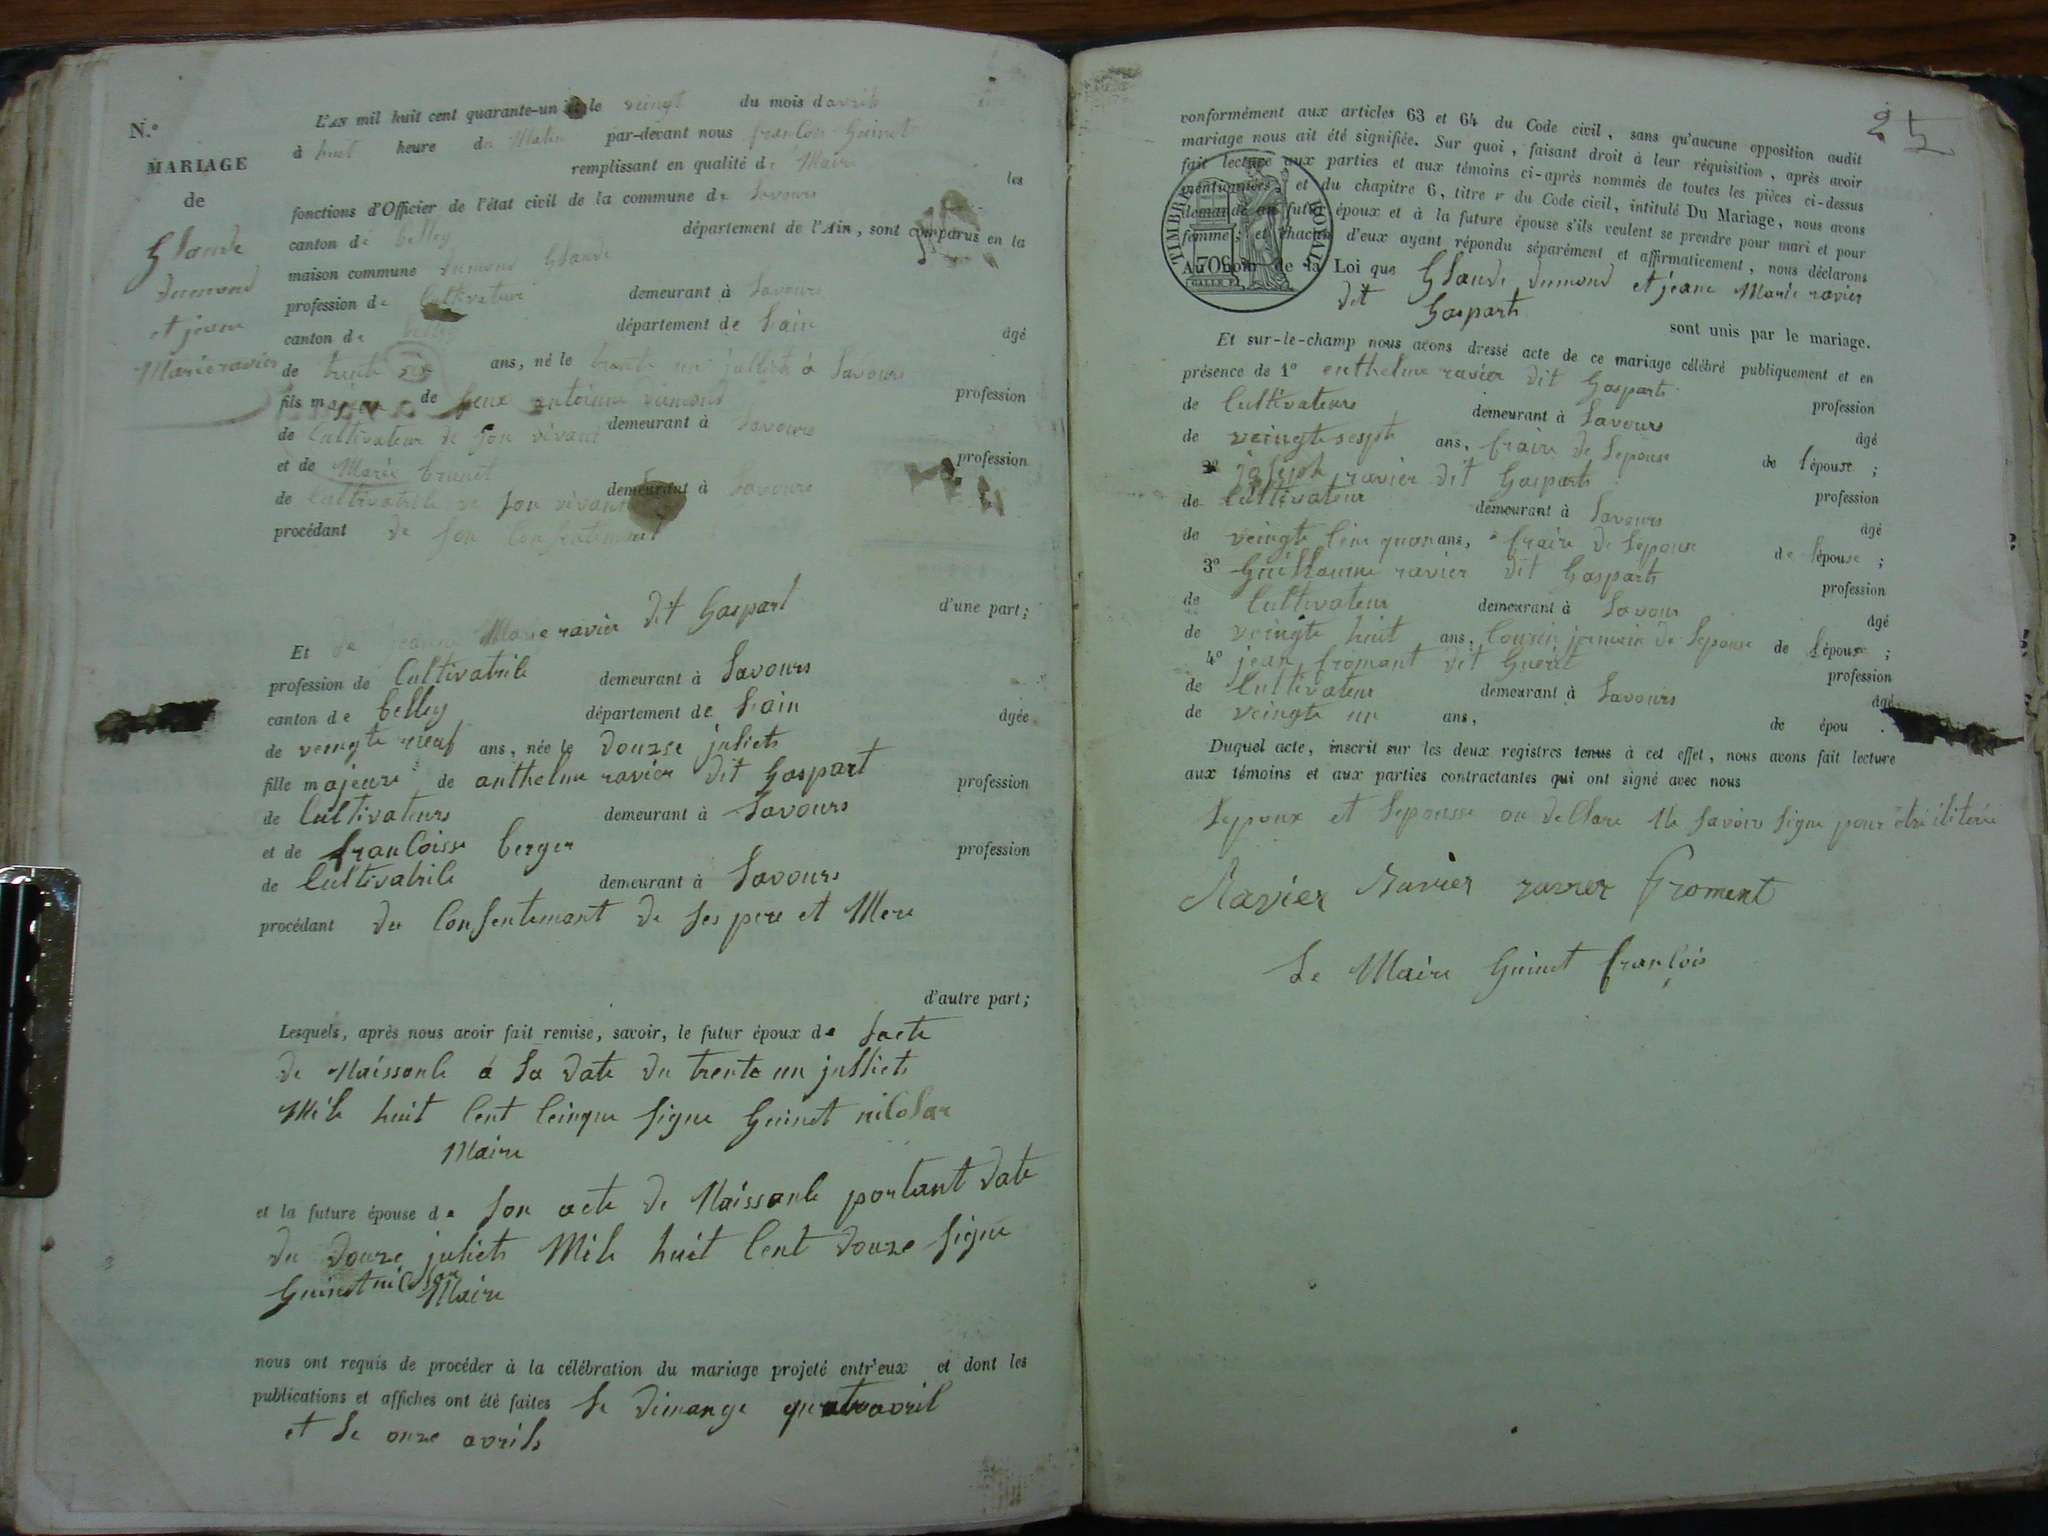 N.º
MARIAGE
de
Glaude
dumond
et jeane
Marie ravier
L'AN mil huit cent quarante-un le veingt du mois d avrils
à huit heure du Matin par-devant nous françois Guinet
remplissant en qualité de Maire les
fonctions d'Officier de l'état civil de la commune de Savours
canton de belley département de l'Ain, sont comparus en la
maison commune dumond Glaude
profession de Cultivateur demeurant à Savours
canton de belley département de Lain âgé
de trente six ans, né le trente un julliets à Savours
fils majeur de feux antoinne dumond profession
de Cultivateur de son vivant demeurant à Savours
et de Marie brunet profession
de Cultivatrice de son vivant demeurant à Savours
procédant de son Consentement
d'une part;
Et de jeanne Marie ravier dit Gaspart
profession de Cultivatrice demeurant à Savours
canton de belley département de Lain âgée
de veingte neuf ans, née le douzse juliets
fille majeure de anthelme ravier dit Gaspart profession
de Cultivateurs demeurant à Savours
et de francoisse berger profession
de Cultivatrice demeurant à Savours
procédant du Consentemant de ses pere et Mere
d'autre part;
Lesquels, après nous avoir fait remise, savoir, le futur époux de Lacte
de Naissance a La date du trente un julliets
Mile huit Cent Cinque signe Guinet nicolas
Maire
et la future épouse de son acte de Naissance portant date
du douze juliets Mile huit Cent douze signe
Guinet nicolas Maire
nous ont requis de procéder à la célébration du mariage projeté entr'eux et dont les
publications et affiches ont été faites Le dimange quatre avril
et Le onze avrils
25
conformément aux articles 63 et 64 du Code civil, sans qu'aucune opposition audit
mariage nous ait été signifiée. Sur quoi, faisant droit à leur réquisition, après avoir
fait lecture aux parties et aux témoins ci-après nommés de toutes les pièces ci-dessus
mentionnées, et du chapitre 6, titre v du Code civil, intitulé Du Mariage, nous avons
demandé au futur époux et à la future épouse s'ils veulent se prendre pour mari et pour
femme; et chacun d'eux ayant répondu séparément et affirmativement, nous déclarons
TIMBRE ROYAL
70c
Au nom de la Loi que Glaude dumond et jeane Marie ravier
dit Gaspart
sont unis par le mariage.
Et sur-le-champ nous avons dressé acte de ce mariage célébré publiquement et en
présence de 1º enthelme ravier dit Gasparts profession
de Cultivateurs demeurant à Savours âgé
de veingte sespt ans, fraire de Lepouse de lépouse;
2º joseph ravier dit Gasparts profession
de Cultivateur demeurant à Savours âgé
de veingte ans, fraire de Lepouse de lépouse;
3º Guillaume ravier dit Gasparts profession
de Cultivateur demeurant à Savour âgé
de veingte huit ans, Cousin jermain de Lepouse de lépouse;
4º jean fromant dit Guerat profession
de Cultivateur demeurant à Savours âgé
de veingte un ans, de épou
Duquel acte, inscrit sur les deux registres tenus à cet effet, nous avons fait lecture
aux témoins et aux parties contractantes qui ont signé avec nous
Lepoux et Lepousse on declare Ne savoir signe pour être iliterie
Ravier Ravier ravier froment
Le Maire Guinet françois